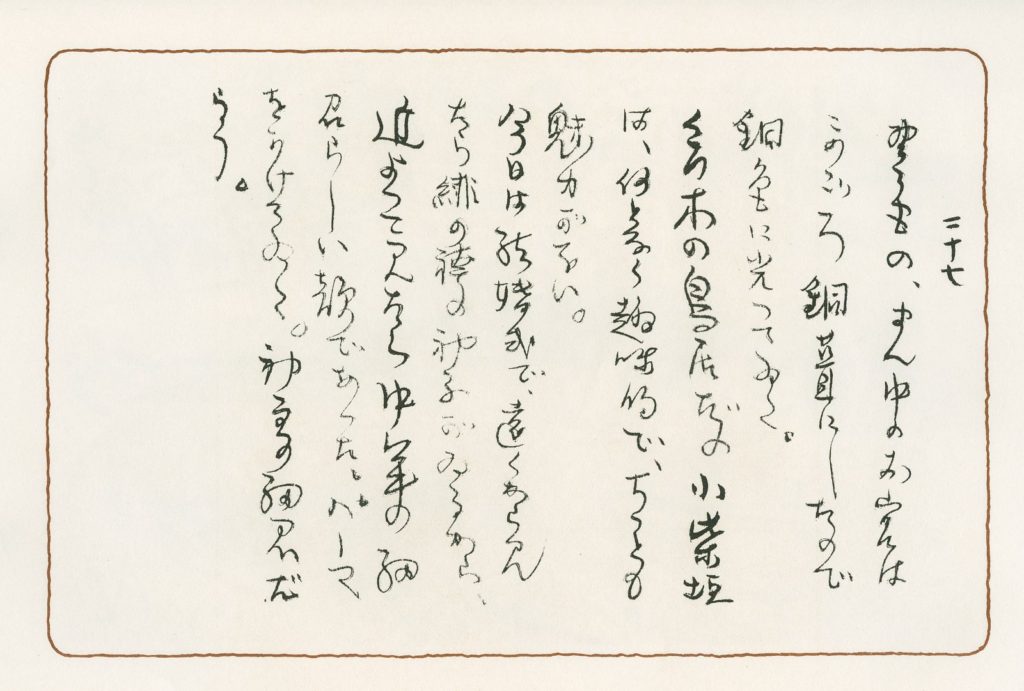 二十七
野々宮の、まん中のお宮は
このごろ銅葺にしたので
銅色に光つてゐる。
くろ木の鳥居だの小柴垣
は、何となく趣味的で、ちつとも
魅力がない。
今日は結婚式で、遠くから見
たら緋の袴の神子がゐるから、
近よつて見たら中年の細
君らしい顔であつた。パーマ
をかけてゐる。神主の細君だ
らう。